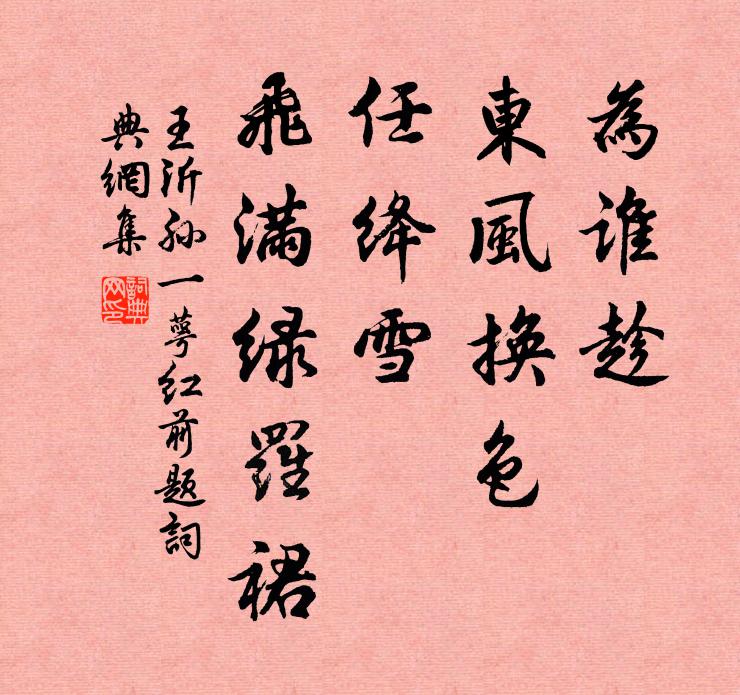 為谁趁
東風換色
任绛雪
飛满绿羅裙
王沂孙一萼红前题詞
典網集
詞典
网印